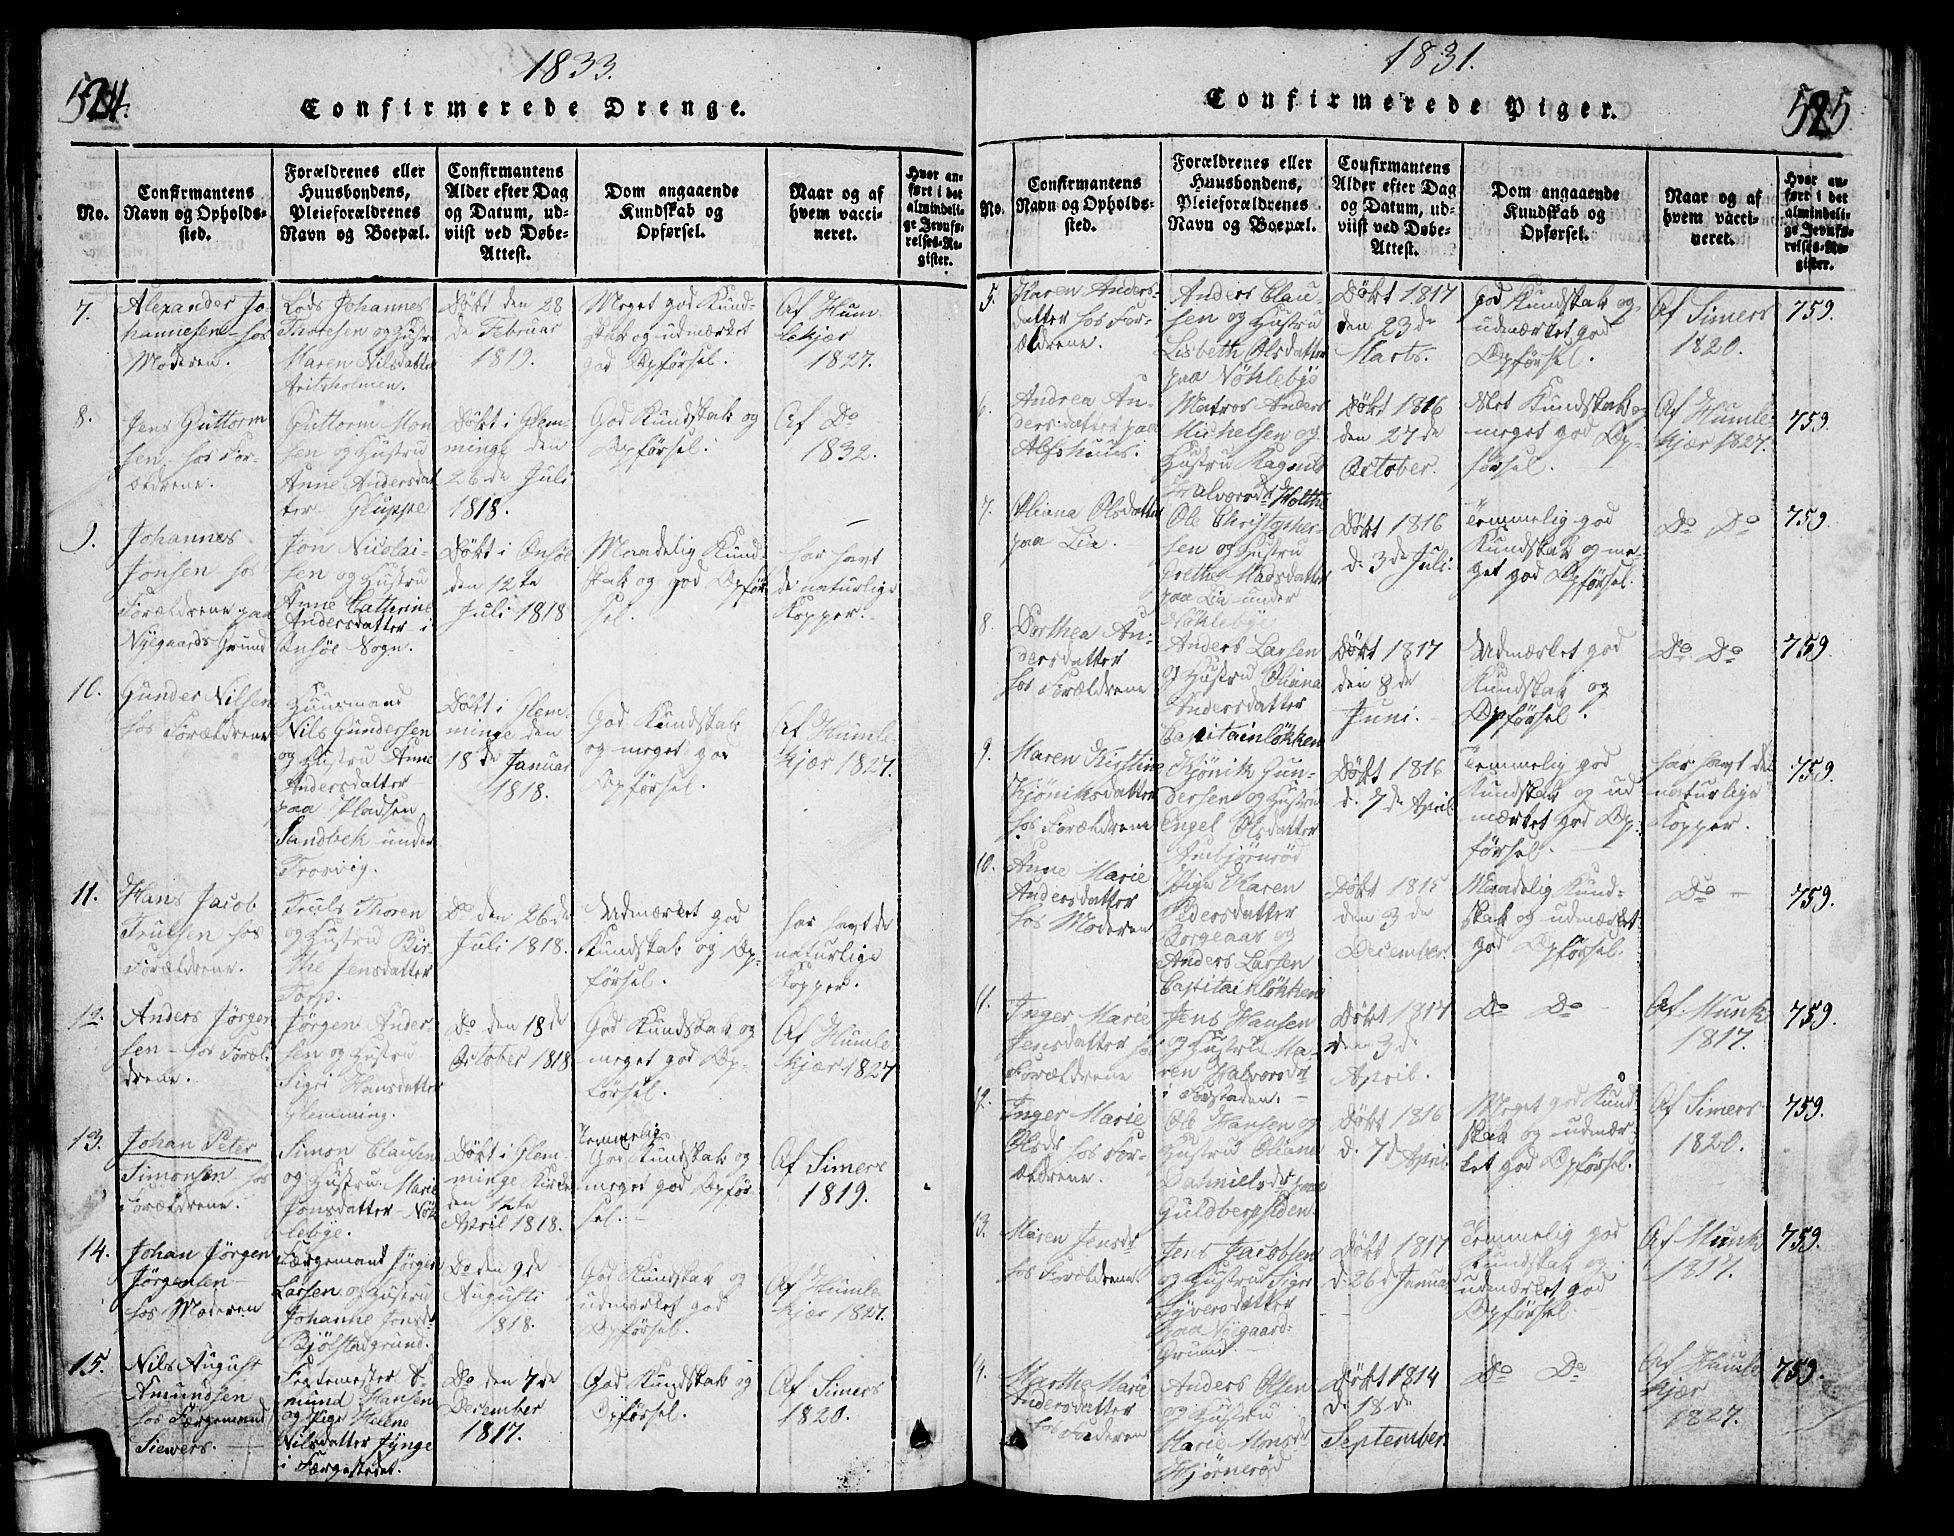 1833.
524.
Confirmerede Drenge.
No.
Confirmantens
Navn og Opholds-
sted.
Forældrenes eller
Huusbondens,
Pleieforældrenes
Navn og Boepæl.
Confirmantens
Alder efter Dag
og Datum, ud-
viist ved Døbe-
Attest.
Dom angaaende
Kundskab og
Opførsel.
Naar og af
hvem vacci-
neret.
Hvor an-
ført i det
almindeli-
ge Jevnfø-
relses-Re-
gister.
7.
Alexander Jo-
hannesen hos
Moderen.
Lods Johannes
Thoresen og Hustru
Maren Nilsdatter
Døbt den 28
de Februar
1819.
Meget god Kund-
skab og udmærket
god Opførsel.
Af Hum-
lekjær
1827.
8.
Jens Guttorm
sen - hos For-
ældrene.
Guttorm Mon
sen og Hustru
Anne Andersdat
ter - Gluppe
Døbt i Glem-
minge den
26de Juli
1818.
God Kundskab og
Opførsel.
Af Do
1832.
9.
Johannes
Jonsen hos
Forældrene paa
Nyegaards Grund
Jon Nicolai-
sen og Hustru
Anne Cathrine
Andersdatter i
Onsøe Sogn.
Døbt i Onsøe
den 12te
Juli 1818
Maadelig Kund-
skab og god Opfør
sel.
har havt
de naturlige
Kopper.
10.
Gunder Nilsen
hos Forældrene
Huusmand
Nils Gundersen
og Hustru Anne
Andersdatter
paa Pladsen
Sandbek under
Trosvig.
Døbt i Glem-
minge den
18de Januar
1818.
God Kundskab
og meget god
Opførsel.
Af Humle-
kjær 1827.
11.
Hans Jacob
Trulsen hos
Forældrene.
Truls Thoren
og Hustru Bir-
the Jensdatter
Torp.
Do den 26de
Juli 1818.
Udmærket god
Kundskab og Op-
førsel.
har havt de
naturlige
Kopper.
12.
Anders Jørgen
sen - hos Foræl-
drene.
Jørgen Ander-
sen og Hustru
Sigri Hansdatter
Glemming.
Do den 18de
October 1818
God Kundskab og
meget god Op-
førsel.
Af Humle-
kjær 1827
13.
Johan Peter
Simonsen hos
Forældrene.
Simon Clausen
og Hustru Marie
Jonsdatter - Nøk
lebye.
Døbt i Glem-
minge Kirke
den 12te
April 1818.
Temmelig
God Kundskab og
meget god Opfør
sel.
Af Simers
1819.
14.
Johan Jørgen
Jørgensen -
hos Moderen
Færgemand Jørgen
Larsen og Hustru
Johanne Jonsd.
Bjølstadgrund.
Do den 9de
Augusti
1818.
God Kundskab og
udmærket god
Opførsel.
Af Humle-
kjær 1827.
15.
Nils August
Amundsen
hos Færgemand
Siewers.
mund Hansen
og Pige Helene
Nilsdatter Jynge
i Færgestedet.
Do den 7de
December
1817.
God Kundskab og
Opførsel.
Af Simers
1820.
1831.
525
Confirmerede Piger.
No.
Confirmantens
Navn og Opholds-
sted.
Forældrenes eller
Huusbondens,
Pleieforældrenes
Navn og Boepæl.
Confirmantens
Alder efter Dag
og Datum, ud-
viist ved Døbe-
Attest.
Dom angaaende
Kundskab og
Opførsel.
Naar og af
hvem vacci-
neret.
Hvor an-
ført i det
almindeli-
ge Jevnfø-
relses-Re-
gister.
5.
Karen Anders-
datter hos For-
ældrene.
Anders Clau-
sen og Hustru
Lisbeth Olsdatter
paa Nøklebye
Døbt 1817
den 23de
Marts.
God Kundskab og
udmærket god
Opførsel.
Af Simers
1820.
759.
6.
Andrea An-
dersdatter paa
Alfshuus.
Matros Anders
Michelsen og
Hustru Ragnild
Halvorsd. Holthe
Døbt 1816
den 27de
October.
Slet Kundskab og
meget god Op-
førsel.
Af Humle-
kjær 1827.
759
7.
Oliana Olsdatter
paa Lia.
Ole Christopher-
sen og Hustru
Grethe Madsdatter
paa Lia under
Nøklebye
Døbt 1816
d. 3de Juli.
Temmelig god
Kundskab og me-
get god Opførsel.
Do Do
759
8.
Dorthea An-
dersdatter
hos Forældrene
Anders Larsen
og Hustru Oliana
Andersdatter
Capitainløkken
Døbt 1817
den 8de
Juni.
Udmærket god
Kundskab og
Opførsel.
Do Do
759
9.
Maren Kirstine
Kjøniksdatter
hos Forældrene
Kjønik Gun-
dersen og Hustru
Engel Olsdatter
Ambjørnrød
Døbt 1816
d. 7de April
Temmelig god
Kundskab og ud
mærket god Op-
førsel.
har havt de
naturlige
Kopper.
759.
10.
Anne Marie
Andersdatter
hos Moderen
Pige Karen
Pedersdatter
Borgeaas og
Anders Larsen
Capitainløkken
Døbt 1815
den 3de
December.
Maadelig Kund-
skab og udmærket
god Opførsel.
Do -
759.
11.
Inger Marie
Jensdatter hos
Forældrene
Jens Hansen
og Hustru Ma-
ren Halvorsdr
i Forstaden.
Døbt 1817
den 3de
April.
Do Do
Af Munk
1817.
759.
12.
Inger Marie
Olsdr hos For-
ældrene.
Ole Hansen og
Hustru Oliane
Danielsdr paa
Guldbergsiden.
Døbt 1816
d. 7de April
Meget god Kund
skab og udmær-
ket god Opførsel.
Af Simers
1820.
759.
13.
Maren Jensdr
hos Forældrene
Jens Jacobsen
og Hustru Sigri
Syversdatter
paa Nyegaard-
Grund.
Døbt 1817
d. 26de Januar
Temmelig god
Kundskab og
udmærket god
Opførsel.
Af Munk
1817.
759.
Martha Marie
Andersdatter
hos Faderen
Anders Olsen
og Hustru
Marie
Bjørnerød
Døbt 1814
d. 18de
September.
Do Do
Af Humle
kjær
1827.
759.